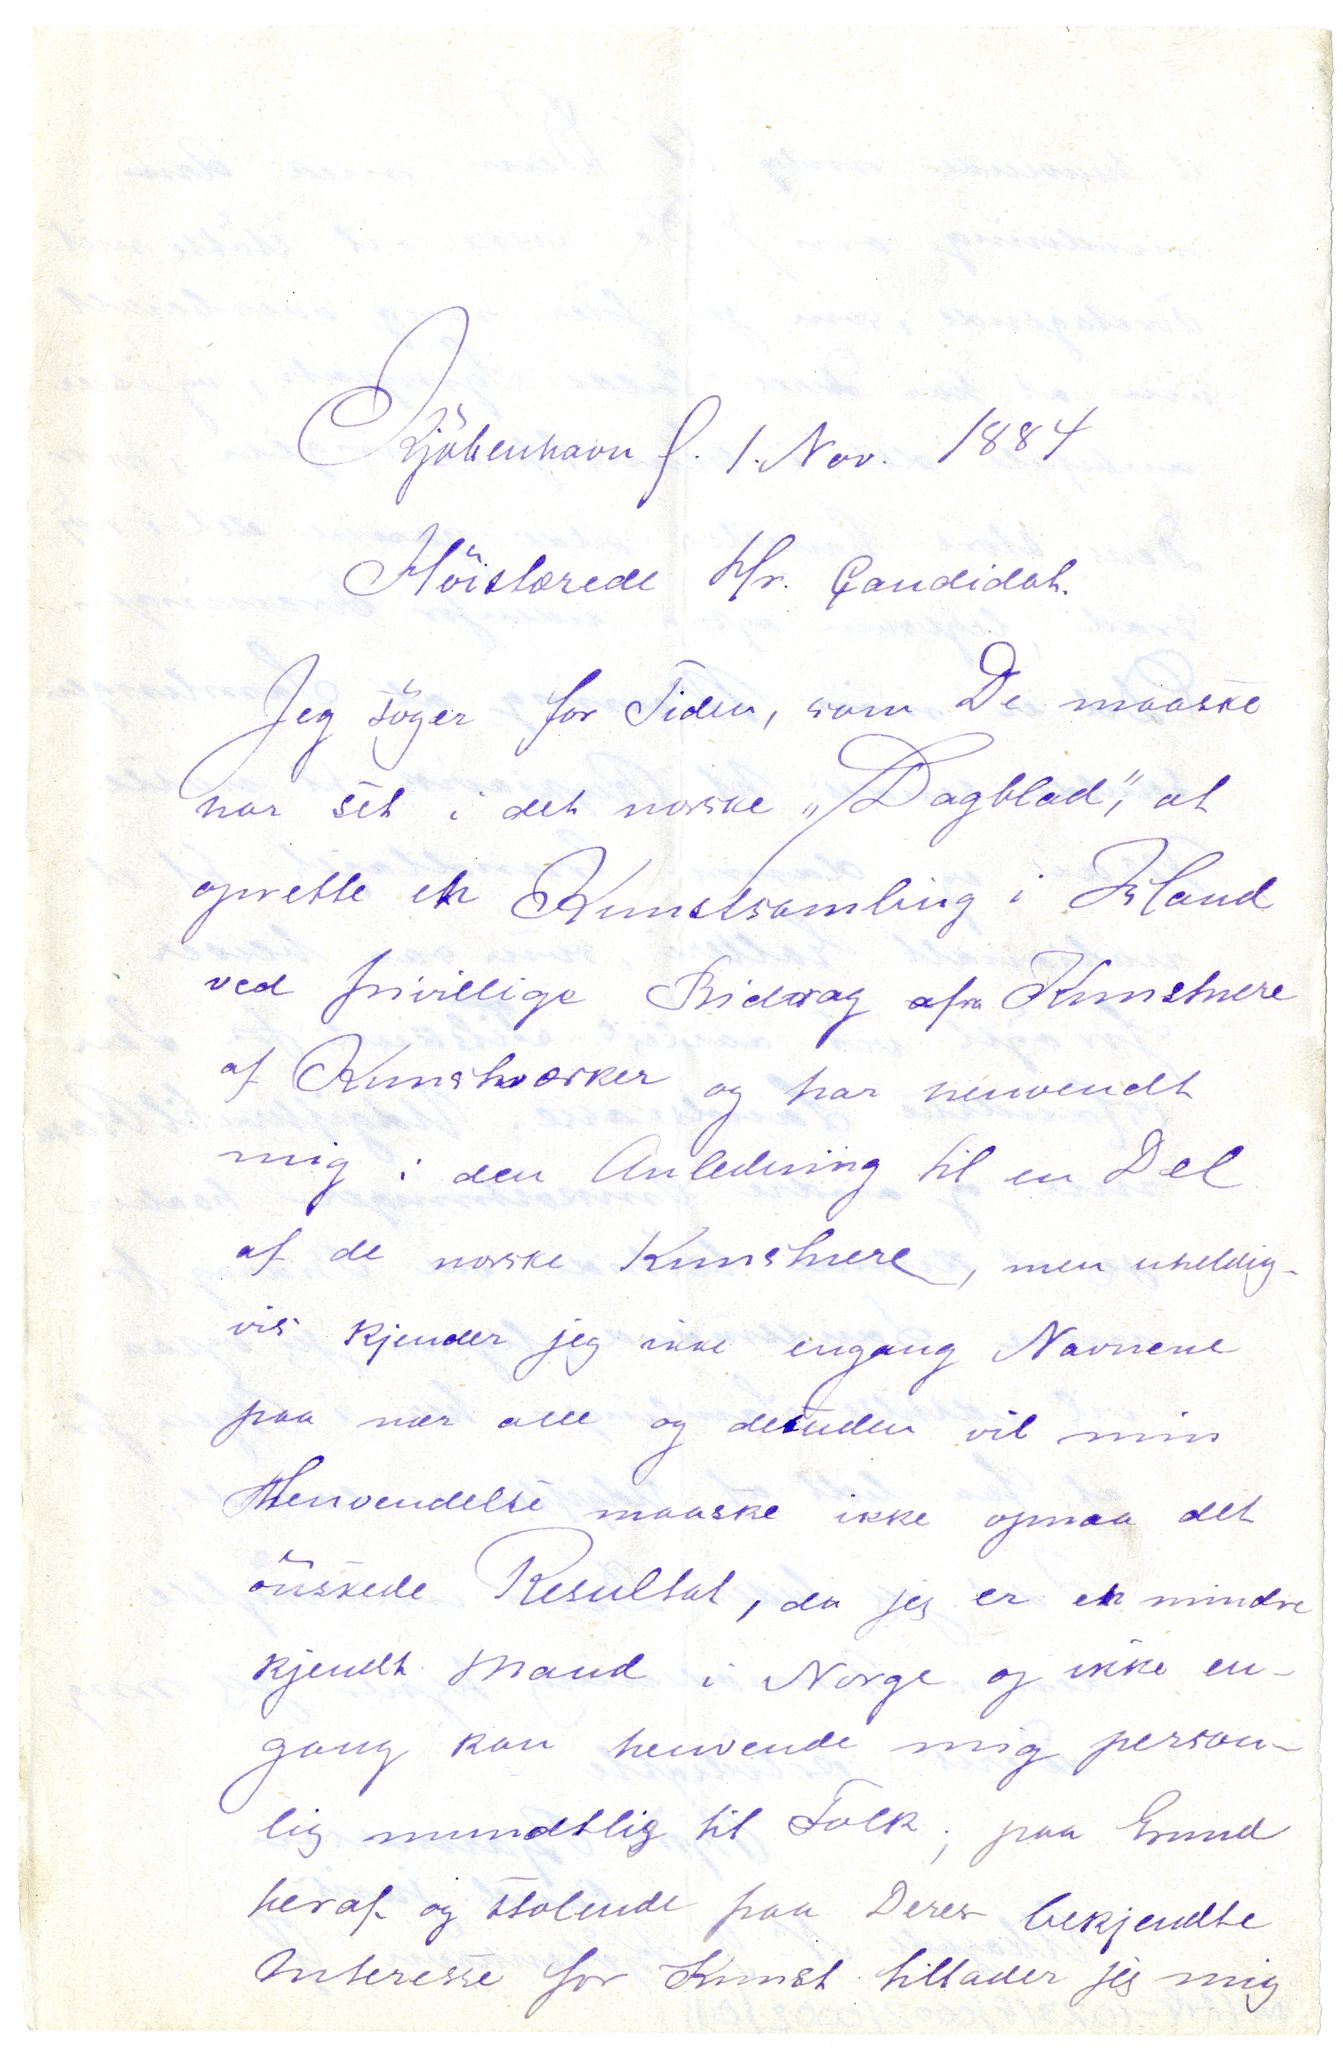 Kjöbenhavn d. 1. Nov. 1884
Höistærede Hr. Candidat.
Jeg söger for Tiden, som De maaske
har set i det norske „Dagblad", at
oprette en Kunstsamling i Island
ved frivillige Bidrag afra Kunstnere
af Kunstværker og har henvendt
mig i den Anledning til en Del
af de norske Kunstnere, men uheldig-
vis kjender jeg ikke engang Navnene
paa nær alle og desuden vil min
Henvendelse maaske ikke opnaa det
önskede Resultat, da jeg er en mindre
kjendt Mand i Norge og ikke en-
gang kan henvende mig person-
lig mundtlig til Folk; paa Grund
heraf og stolende paa Deres bekjendte
Interesse for Kunst tillader jeg mig